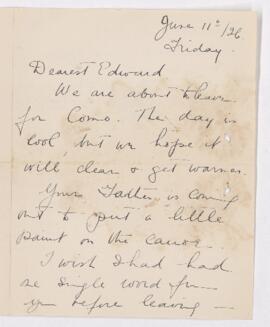 June 11th/26
Friday.
Dearest Edward
We are about to leave
for Como. The day is
cool, but we hope it
will clear & get warmer.
Your Father is coming
out to put a little
paint on the canoe.
I wish I had had
one single word from
you before leaving —